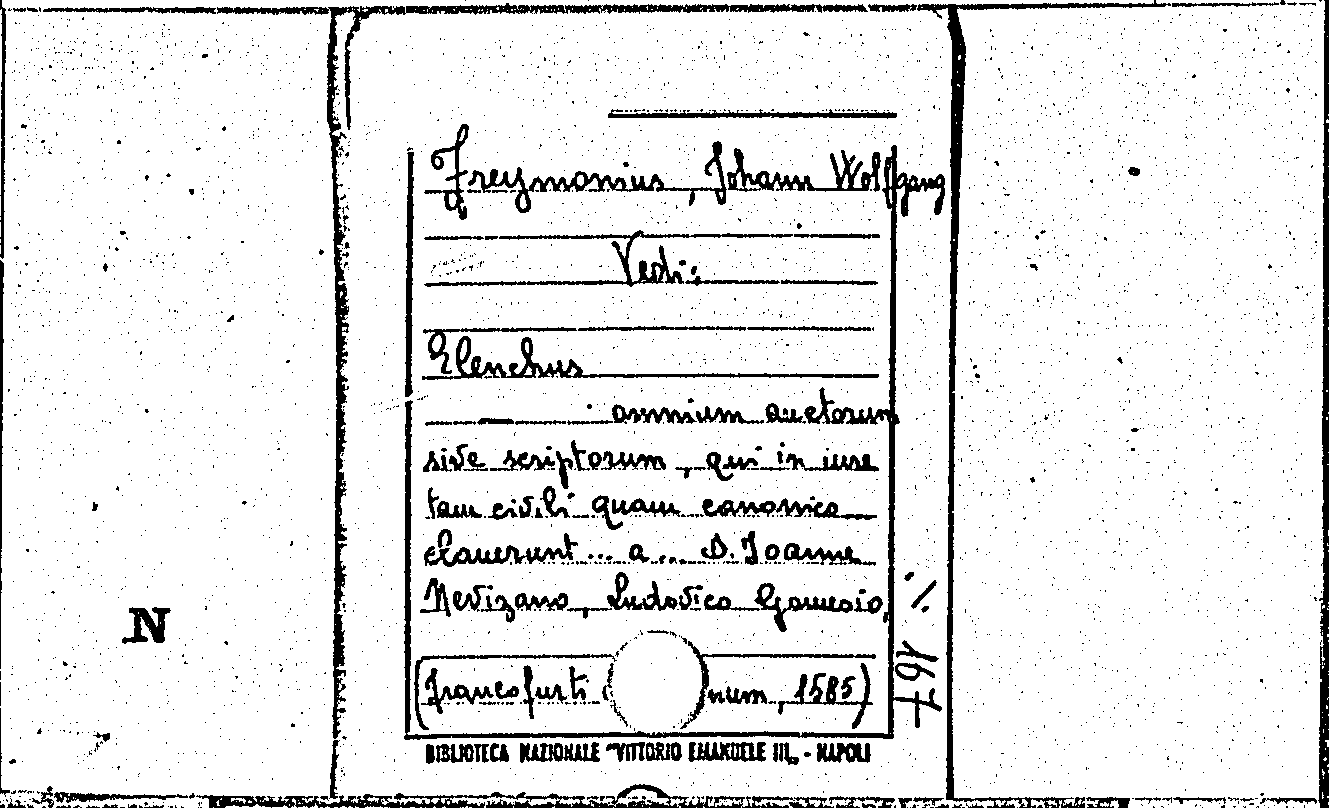 Freymonius, Johann Wolffgang
Vedi:
Elenchus
omnium auctorum
sive scriptorum, qui in iure
tam civili quam canonico
claruerunt ... a ... D. Joanne
Nevizano, Ludovico Gomesio,
./.
(Francofurti num, 1585)
167
BIBLIOTECA NAZIONALE "VITTORIO EMANUELE III„ - NAPOLI
N